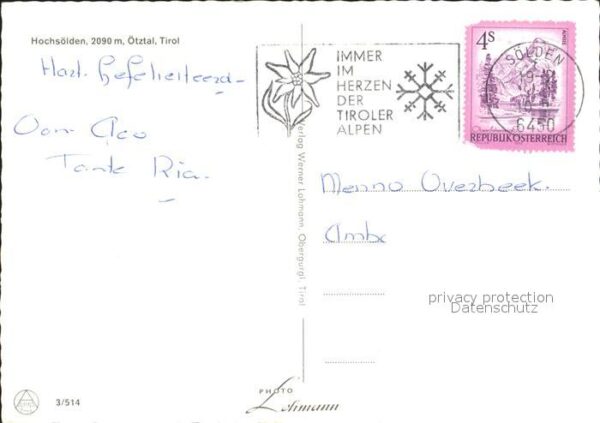 Hochsölden, 2090 m, Ötztal, Tirol
Hart. Gefeliciteerd
Oom Aco
Tante Ria.
IMMER
IM
HERZEN
DER
TIROLER
ALPEN
4s
SÖLDEN
6450
REPUBLIK ÖSTERREICH
Verlag Werner Lohmann, Obergurgl, Tirol
Menno Overbeek.
privacy protection
Datenschutz
PHOTO
Lohmann
3/514